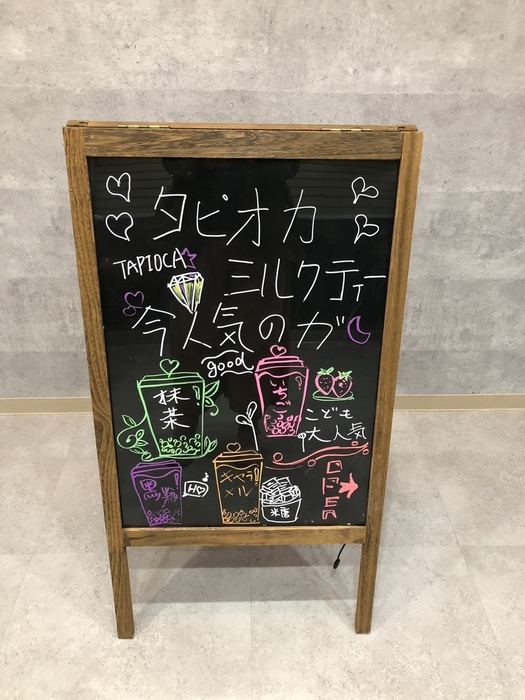 タピオカ
TAPIOCA
ミルクティー
今人気のが
good
抹茶
いちご
こども
大人気
黒糖
キャラメル
糖
OPEN